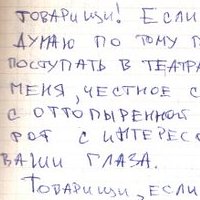 ТОВАРИЩИ! ЕСЛИ
ДУМАЮ ПО ТОМУ П
ПОСТУПАТЬ В ТЕАТРА
МЕНЯ, ЧЕСТНОЕ С
С ОТТОПЫРЕННОЙ
РОТ С ИНТЕРЕС
ВАШИ ГЛАЗА.
ТОВАРИЩИ, ЕСЛИ